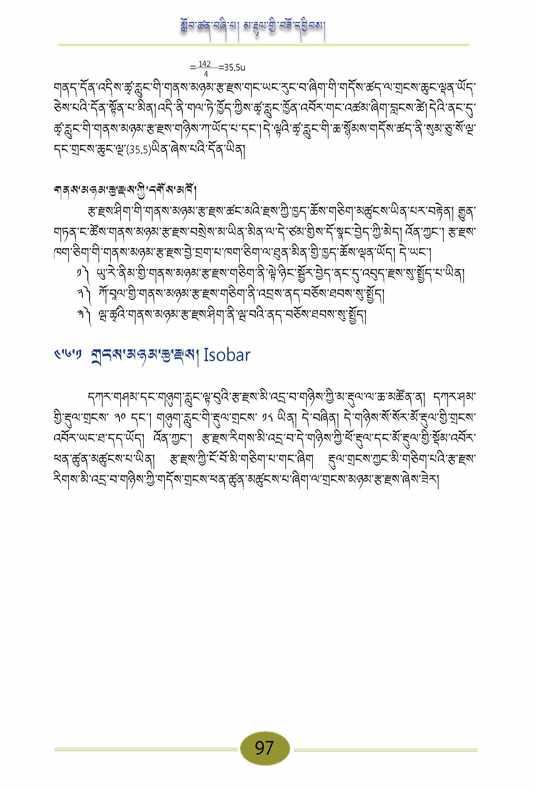 སློབ་ཚན་བཞི་པ། མ་རྡུལ་གྱི་བཟོ་དབྱིབས།
= 142/4 =35,5u
གནད་དོན་འདིས་ཚྭ་རླུང་གི་གནས་མཉམ་རྩ་རྫས་གང་ཡང་རུང་བ་ཞིག་གི་གདོས་ཚད་ལ་གྲངས་ཆུང་ལྡན་ཡོད་
ཅེས་པའི་དོན་སྟོན་པ་མིན། འདི་ནི་གལ་ཏེ་ཁྱོད་ཀྱིས་ཚྭ་རླུང་ཁྱོན་འབོར་གང་འཚམ་ཞིག་བླངས་ཚེ། དེའི་ནང་དུ་
ཚྭ་རླུང་གི་གནས་མཉམ་རྩ་རྫས་གཉིས་ཀ་ཡོད་པ་དང་། དེ་ལྟའི་ཚྭ་རླུང་གི་ཆ་སྙོམས་གདོས་ཚད་ནི་སུམ་ཅུ་སོ་ལྔ་
དང་གྲངས་ཆུང་ལྔ་(35.5)ཡིན་ཞེས་པའི་དོན་ཡིན།
གནས་མཉམ་རྩ་རྫས་ཀྱི་དགོས་མཁོ།
རྩ་རྫས་ཤིག་གི་གནས་མཉམ་རྩ་རྫས་ཚང་མའི་རྫས་ཀྱི་ཁྱད་ཆོས་གཅིག་མཚུངས་ཡིན་པར་བརྟེན། རྒྱུན་
གཏན་ང་ཚོས་གནས་མཉམ་རྩ་རྫས་བསྲེས་མ་ཡིན་མིན་ལ་དེ་ཙམ་གྱིས་དོ་སྣང་བྱེད་ཀྱི་མེད། འོན་ཀྱང་། རྩ་རྫས་
ཁག་ཅིག་གི་གནས་མཉམ་རྩ་རྫས་བྱེ་བྲག་པ་ཁག་ཅིག་ལ་ཐུན་མིན་གྱི་ཁྱད་ཆོས་ལྡན་ཡོད། དེ་ཡང་།
༡༽ ཡུ་རེ་ནིམ་གྱི་གནས་མཉམ་རྩ་རྫས་གཅིག་ནི་ལྟེ་ཉིང་སྦྱོར་བྱེད་ནང་དུ་འབུད་རྫས་སུ་སྤྱོད་པ་ཡིན།
༢༽ ཀོ་བལ་གྱི་གནས་མཉམ་རྩ་རྫས་གཅིག་ནི་འབྲས་ནད་བཅོས་ཐབས་སུ་སྤྱོད།
༣༽ ལྦ་ཚྭའི་གནས་མཉམ་རྩ་རྫས་ཤིག་ནི་ལྦ་བའི་ནད་བཅོས་ཐབས་སུ་སྤྱོད།
༤་༦་༡ གྲངས་མཉམ་རྩ་རྫས། Isobar
དཀར་གཤམ་དང་གཉུག་རླུང་ལྟ་བུའི་རྩ་རྫས་མི་འདྲ་བ་གཉིས་ཀྱི་མ་རྡུལ་ལ་ཆ་མཚོན་ན། དཀར་ཤམ་
གྱི་རྡུལ་གྲངས་ ༢༠ དང་། གཉུག་རླུང་གི་རྡུལ་གྲངས་ ༡༨ ཡིན། དེ་བཞིན། དེ་གཉིས་སོ་སོར་མོ་རྡུལ་གྱི་གྲངས་
འབོར་ཡང་ཐ་དད་ཡོད། འོན་ཀྱང་། རྩ་རྫས་རིགས་མི་འདྲ་བ་དེ་གཉིས་ཀྱི་ཕོ་རྡུལ་དང་མོ་རྡུལ་གྱི་སྡོམ་འབོར་
ཕན་ཚུན་མཚུངས་པ་ཡིན། རྩ་རྫས་ཀྱི་ངོ་བོ་མི་གཅིག་པ་གང་ཞིག རྡུལ་གྲངས་ཀྱང་མི་གཅིག་པའི་རྩ་རྫས་
རིགས་མི་འདྲ་བ་གཉིས་ཀྱི་གདོས་གྲངས་ཕན་ཚུན་མཚུངས་པ་ཞིག་ལ་གྲངས་མཉམ་རྩ་རྫས་ཞེས་ཟེར།
97